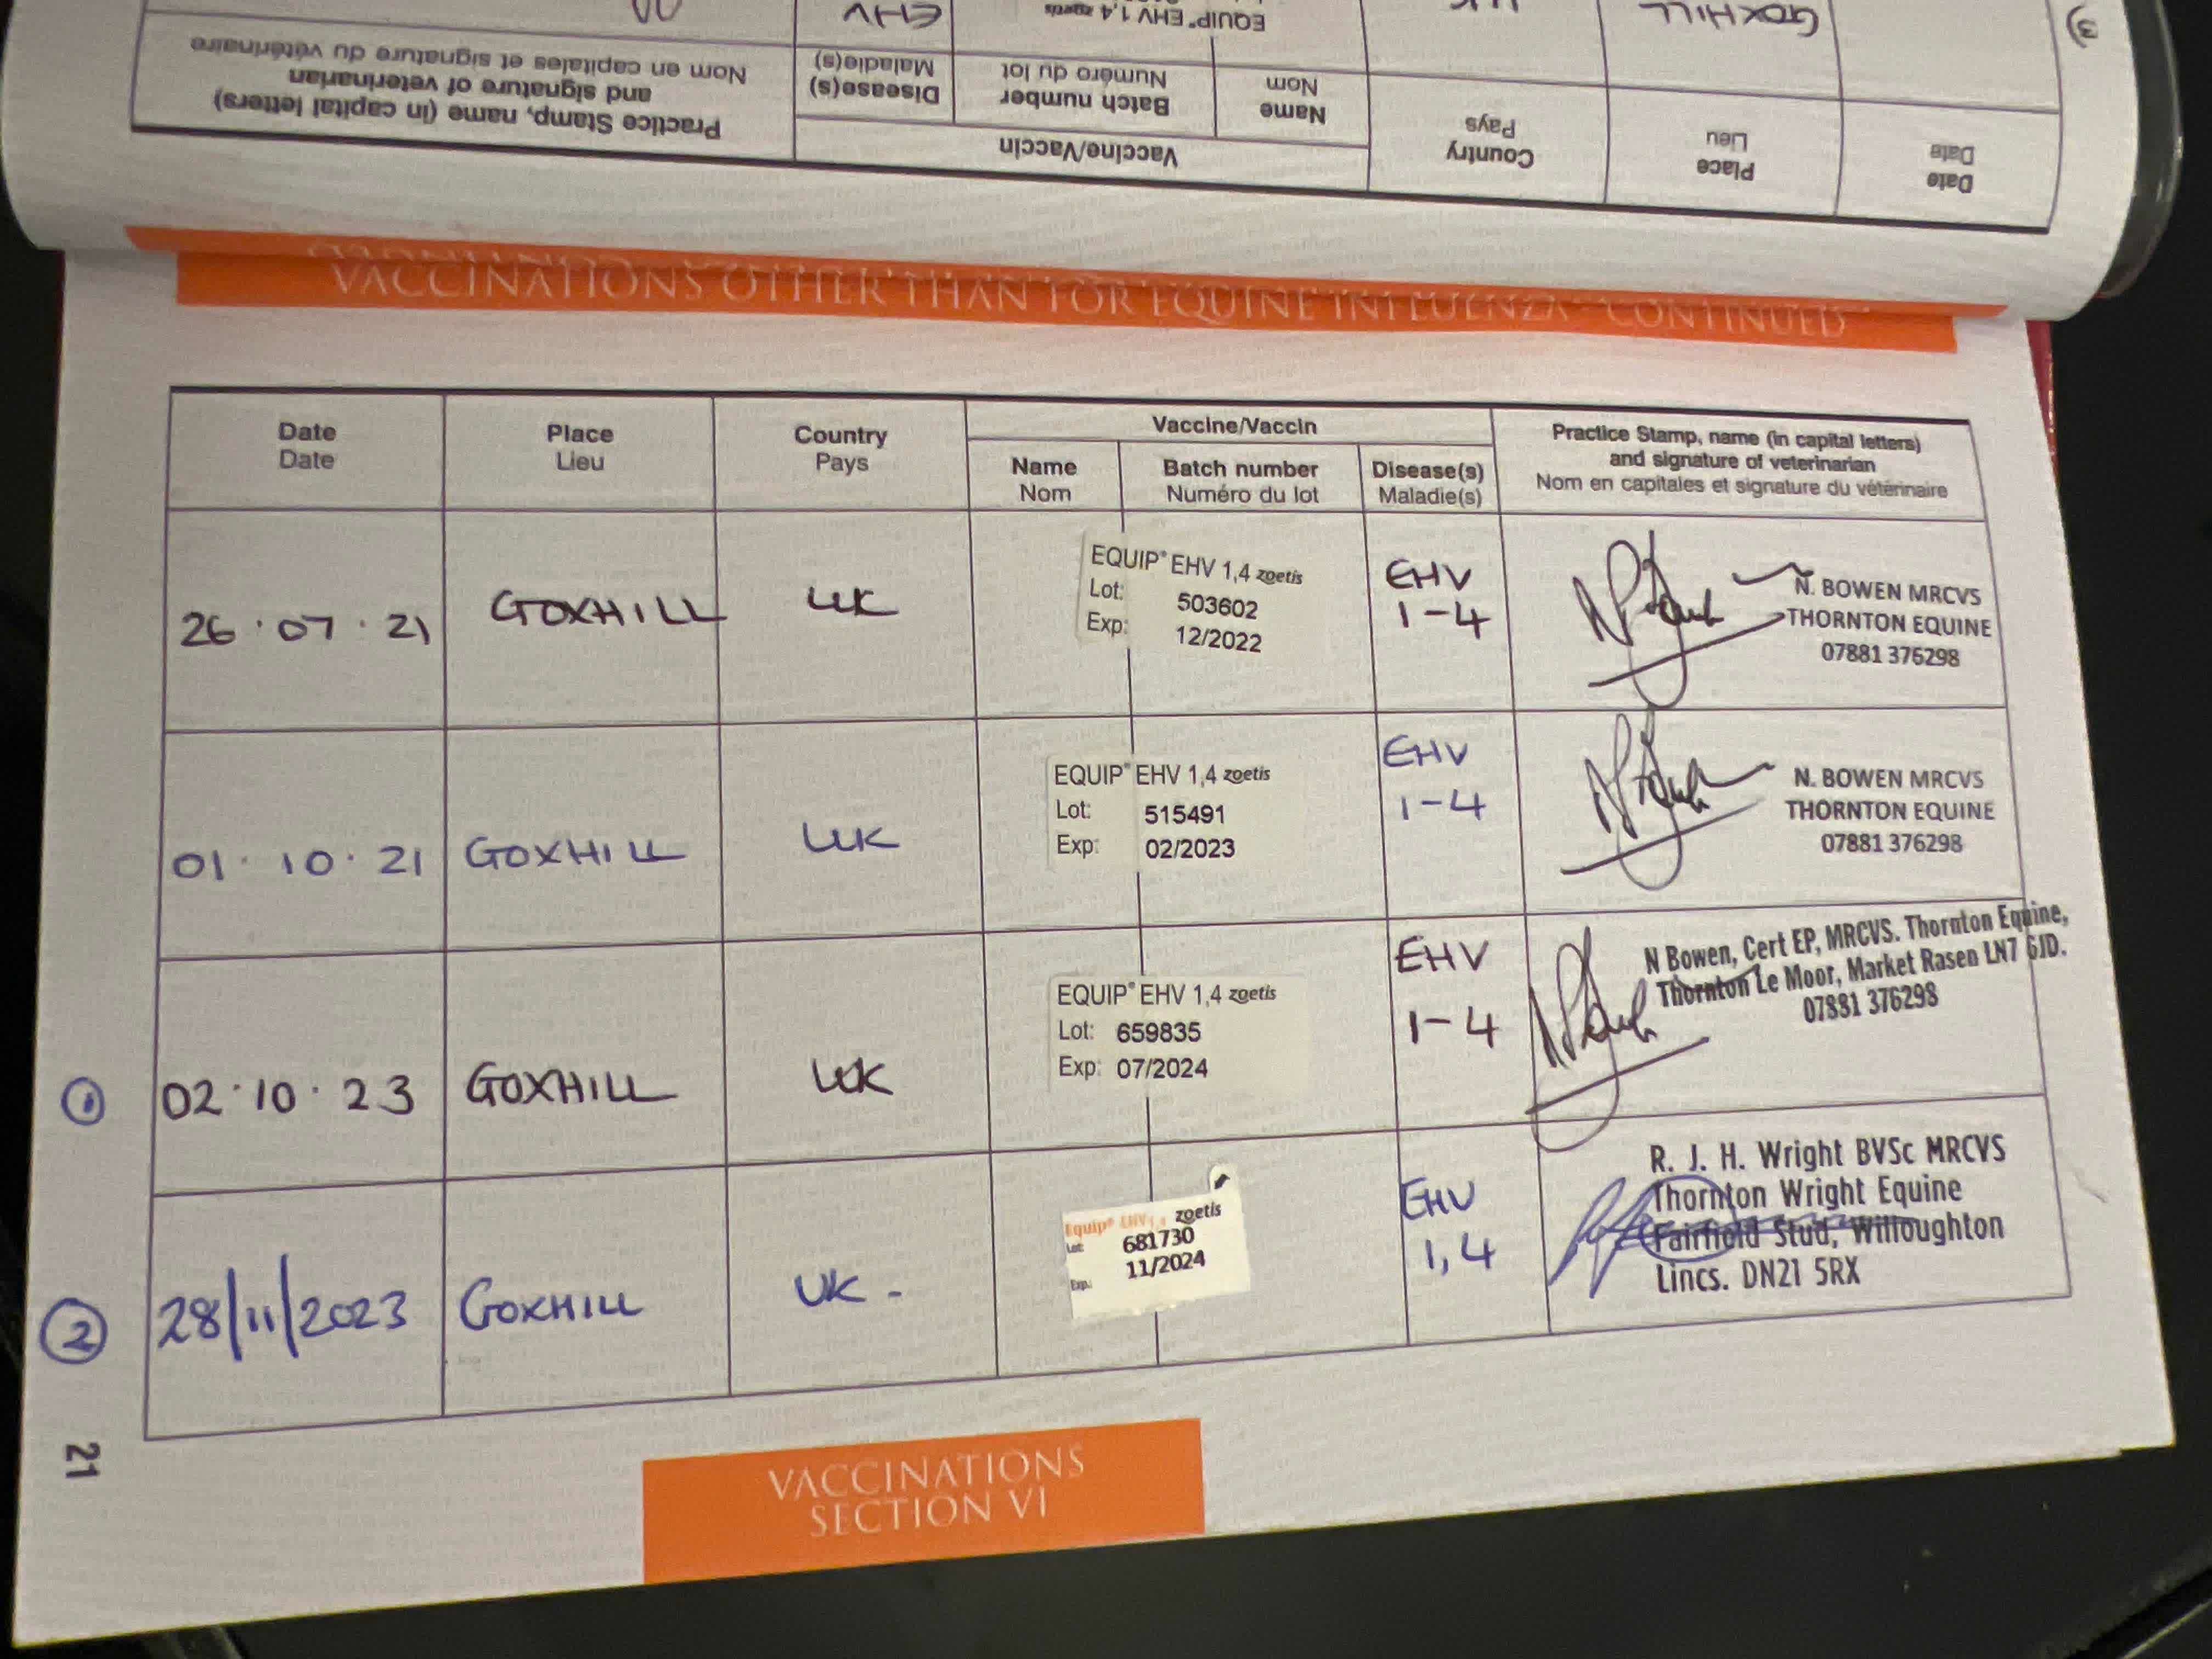 3)
GOXHILL
EQUIP® EHV 1,4 zoetis
EHV
Date
Date
Place
Lieu
Country
Pays
Vaccine/Vaccin
Name
Nom
Batch number
Numéro du lot
Disease(s)
Maladie(s)
Practice Stamp, name (in capital letters)
and signature of veterinarian
Nom en capitales et signature du vétérinaire
VACCINATIONS OTHER THAN FOR EQUINE INFLUENZA - CONTINUED
Date
Date
Place
Lieu
Country
Pays
Vaccine/Vaccin
Name
Nom
Batch number
Numéro du lot
Disease(s)
Maladie(s)
Practice Stamp, name (in capital letters)
and signature of veterinarian
Nom en capitales et signature du vétérinaire
26 · 07 · 21
GOXHILL
UK
EQUIP® EHV 1,4 zoetis
Lot: 503602
Exp: 12/2022
EHV
1-4
N. BOWEN MRCVS
THORNTON EQUINE
07881 376298
01 · 10 · 21
GOXHILL
UK
EQUIP® EHV 1,4 zoetis
Lot: 515491
Exp: 02/2023
EHV
1-4
N. BOWEN MRCVS
THORNTON EQUINE
07881 376298
1
02 · 10 · 23
GOXHILL
UK
EQUIP® EHV 1,4 zoetis
Lot: 659835
Exp: 07/2024
EHV
1-4
N Bowen, Cert EP, MRCVS. Thornton Equine,
Thornton Le Moor, Market Rasen LN7 6JD.
07881 376298
2
28/11/2023
GOXHILL
UK -
Equip® EHV 1,4 zoetis
Lot: 681730
Exp.: 11/2024
EHV
1,4
R. J. H. Wright BVSc MRCVS
Thornton Wright Equine
Fairfield Stud, Willoughton
Lincs. DN21 5RX
21
VACCINATIONS
SECTION VI